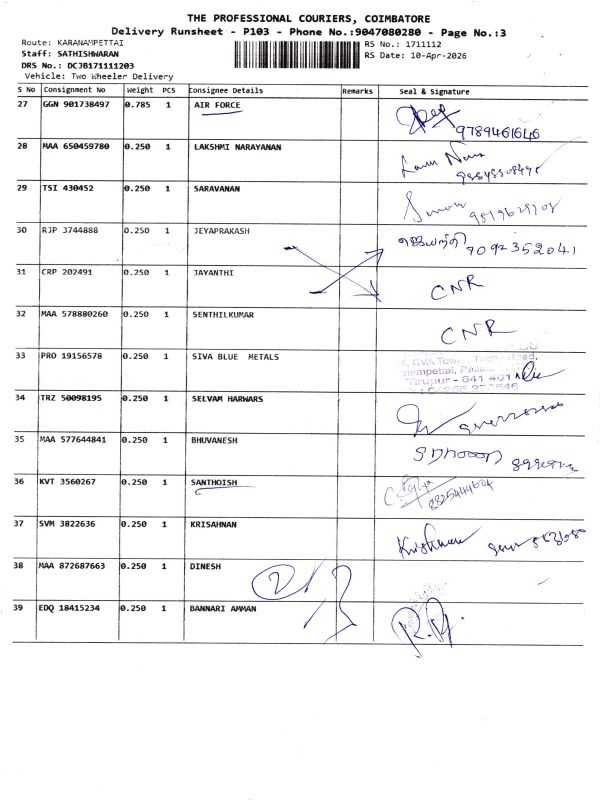 THE PROFESSIONAL COURIERS, COIMBATORE
Delivery Runsheet - P103 - Phone No.:9047080280 - Page No.:3
Route: KARANAMPETTAI RS No.: 1711112
Staff: SATHISHWARAN RS Date: 10-Apr-2026
DRS No.: DCJB171111203
Vehicle: Two Wheeler Delivery
S No Consignment No Weight PCS Consignee Details Remarks Seal & Signature
27 GGN 901738497 0.785 1 AIR FORCE
9789461646
28 MAA 650459780 0.250 1 LAKSHMI NARAYANAN
29 TSI 430452 0.250 1 SARAVANAN
30 RJP 3744888 0.250 1 JEYAPRAKASH
9092352041
31 CRP 202491 0.250 1 JAYANTHI CNR
32 MAA 578880260 0.250 1 SENTHILKUMAR CNR
33 PRO 19156578 0.250 1 SIVA BLUE METALS
Tirupur - 641 401
34 TRZ 50098195 0.250 1 SELVAM HARWARS
35 MAA 577644841 0.250 1 BHUVANESH
36 KVT 3560267 0.250 1 SANTHOISH
37 SVM 3822636 0.250 1 KRISAHNAN Krishnan
38 MAA 872687663 0.250 1 DINESH
39 EDQ 18415234 0.250 1 BANNARI AMMAN